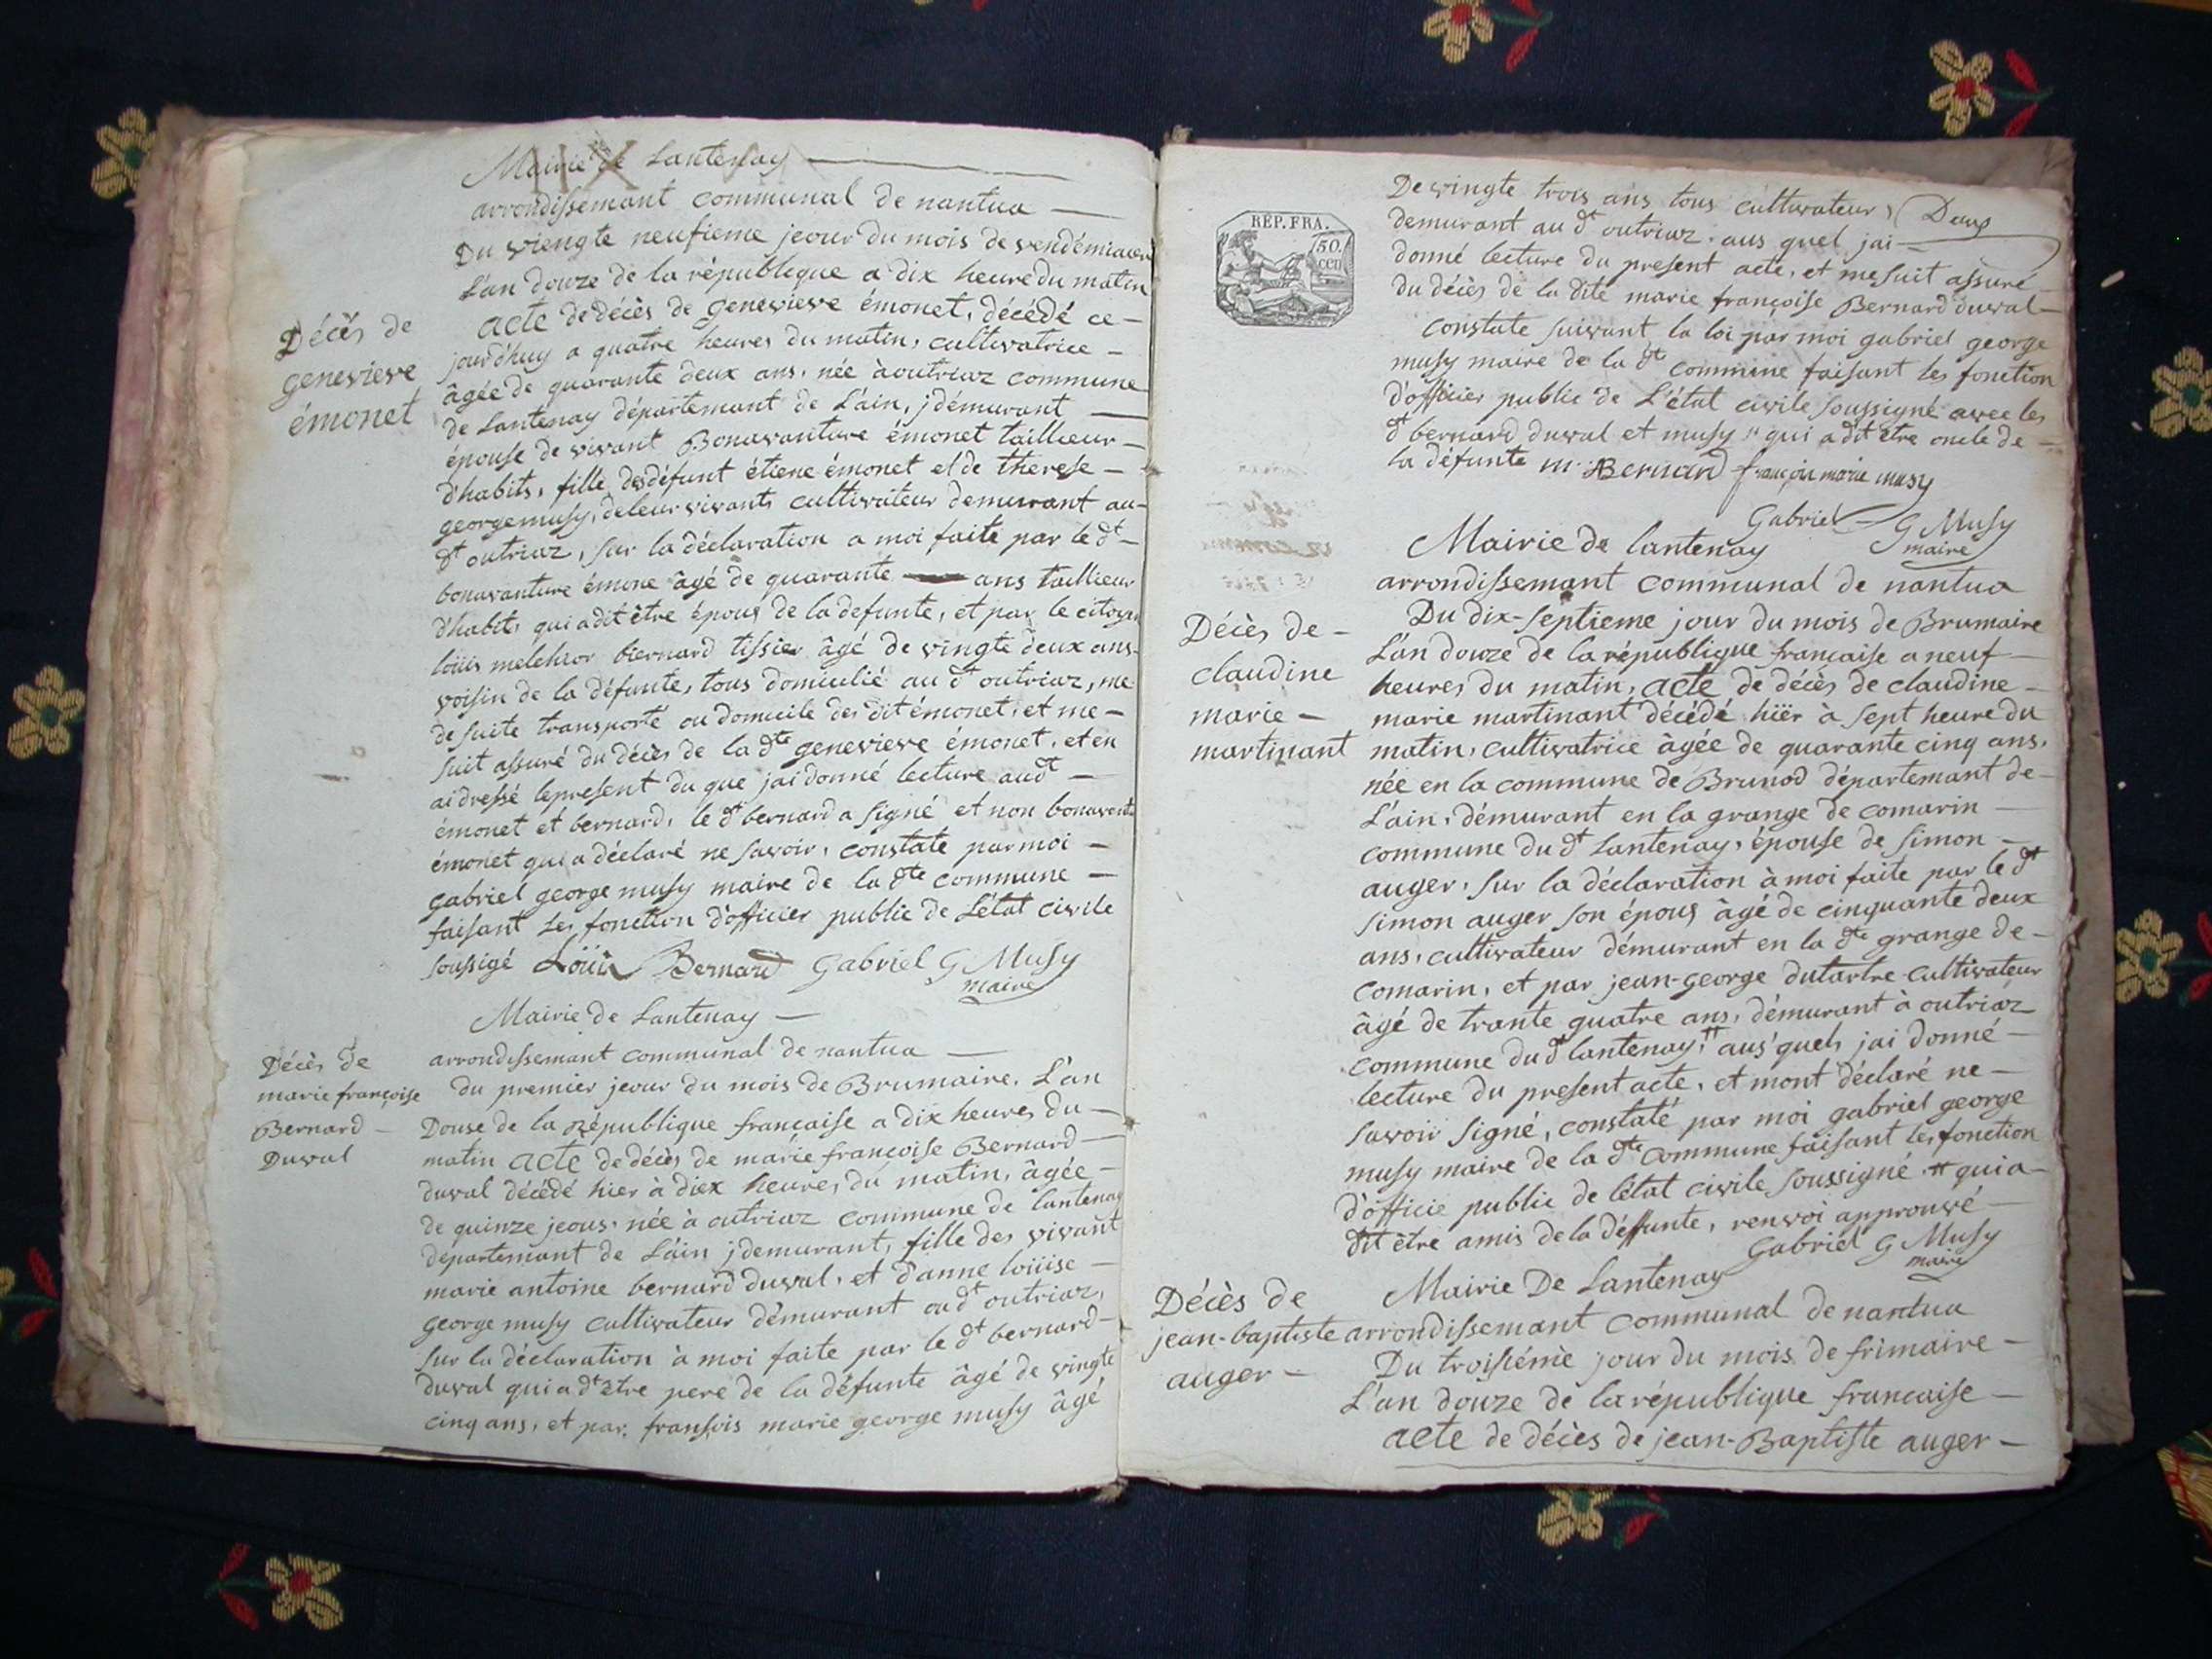 Mairie de Lantenay
arrondissemant communal de nantua
Du viengte neufieme jeour du mois de vendémiaere
L'an douze de la républeque a dix heure du matin
Décès de
genevieve
émonet
acte de décès de genevieve émonet, décédé ce-
jourd'huy a quatre heures du matin, cultivatrice
âgée de quarante deux ans, née à outriaz commune
de Lantenay département de L'ain, j démurant
épouse de vivant Bonavanture émonet taillieur
d'habits, fille des défunt étiene émonet et de therese
george musy, de leur vivants cultivateur demurant au
dt outriaz, sur la déclaration a moi faite par le dt
bonavanture émone âgé de quarante ans taillieur
d'habit, qui a dit être épous de la defunte, et par le citoyen
loüis melchior biernard tissier âgé de vingte deux ans
voisin de la défunte, tous domiculié au dt outriaz, me
de suite transporté au domicile des dit émonet, et me
suit assuré du décès de la dte genevieve émonet, et en
ai dressé le present du que jai donné lecture audt
émonet et bernard, le dt bernard a signé et non bonavent
émonet qui a déclaré ne savoir, constate par moi
gabriel george musy maire de la dte commune
faisant les fonction d'officier public de L'état civile
soussigé Loüis Bernard Gabriel G Musy
maire
Mairie de Lantenay
Décès de
marie françoise
Bernard
Duval
arrondissemant communal de nantua
du premier jeour du mois de Brumaire, L'an
Douse de la république francaise a dix heures du
matin acte de décès de marie francoise Bernard
duval décédé hier à diex heures du matin, âgée
de quinze jeous, née à outriaz commune de lantenay
département de L'ain j demurant, fille des vivant
marie antoine bernard duval, et d'anne loiiise
george musy cultivateur démurant audt outriaz,
sur la déclaration à moi faite par le dt bernard
duval qui a dt être pere de la défunte âgé de vingte
cinq ans, et par fransois marie george musy âgé
REP. FRA.
50.
cen
De vingte trois ans tous cultivateur, Deux
demurant au dt outriaz, aus quel jai
donné lecture du present acte, et me suit assuré
du décès de la dite marie françoise Bernard duval
constate suivant la loi par moi gabriel george
musy maire de la dt commune faisant les fonction
d'officier public de L'état civile soussigné avec les
dt bernard duval et musy " qui a dit être oncle de
la défunte m. a Bernard françoi marie musy
Gabriel G Musy
maire
Mairie de lantenay
arrondissemant communal de nantua
Décès de
claudine
marie
martinant
Du dix-septieme jour du mois de Brumaire
L'an douze de la république française a neuf
heures du matin, acte de décès de claudine
marie martinant décédé hiër à sept heure du
matin, cultivatrice âgée de quarante cinq ans,
née en la commune de Brunod département de
L'ain, démurant en la grange de comarin
commune du dt Lantenay, épouse de simon
auger, sur la déclaration à moi faite par le dt
simon auger son épous âgé de cinquante deux
ans, cultivateur démurant en la dte grange de
comarin, et par jean-george dutartre cultivateur
âgé de trante quatre ans, démurant à outriaz
commune du dt lantenay, # aus'quels jai donné
lecture du present acte, et mont déclaré ne
savoir signé, constaté par moi gabriel george
musy maire de la dte commune faisant les fonction
d'officie public de l'état civile soussigné. # qui a
dit être amis de la déffunte, renvoi approuvé
Gabriel G Musy
maire
Mairie De Lantenay
Décès de
jean-baptiste
auger
arrondissemant communal de nantua
Du troisiémie jour du mois de frimaire
L'an douze de la république francaise
acte de décès de jean-Baptiste auger